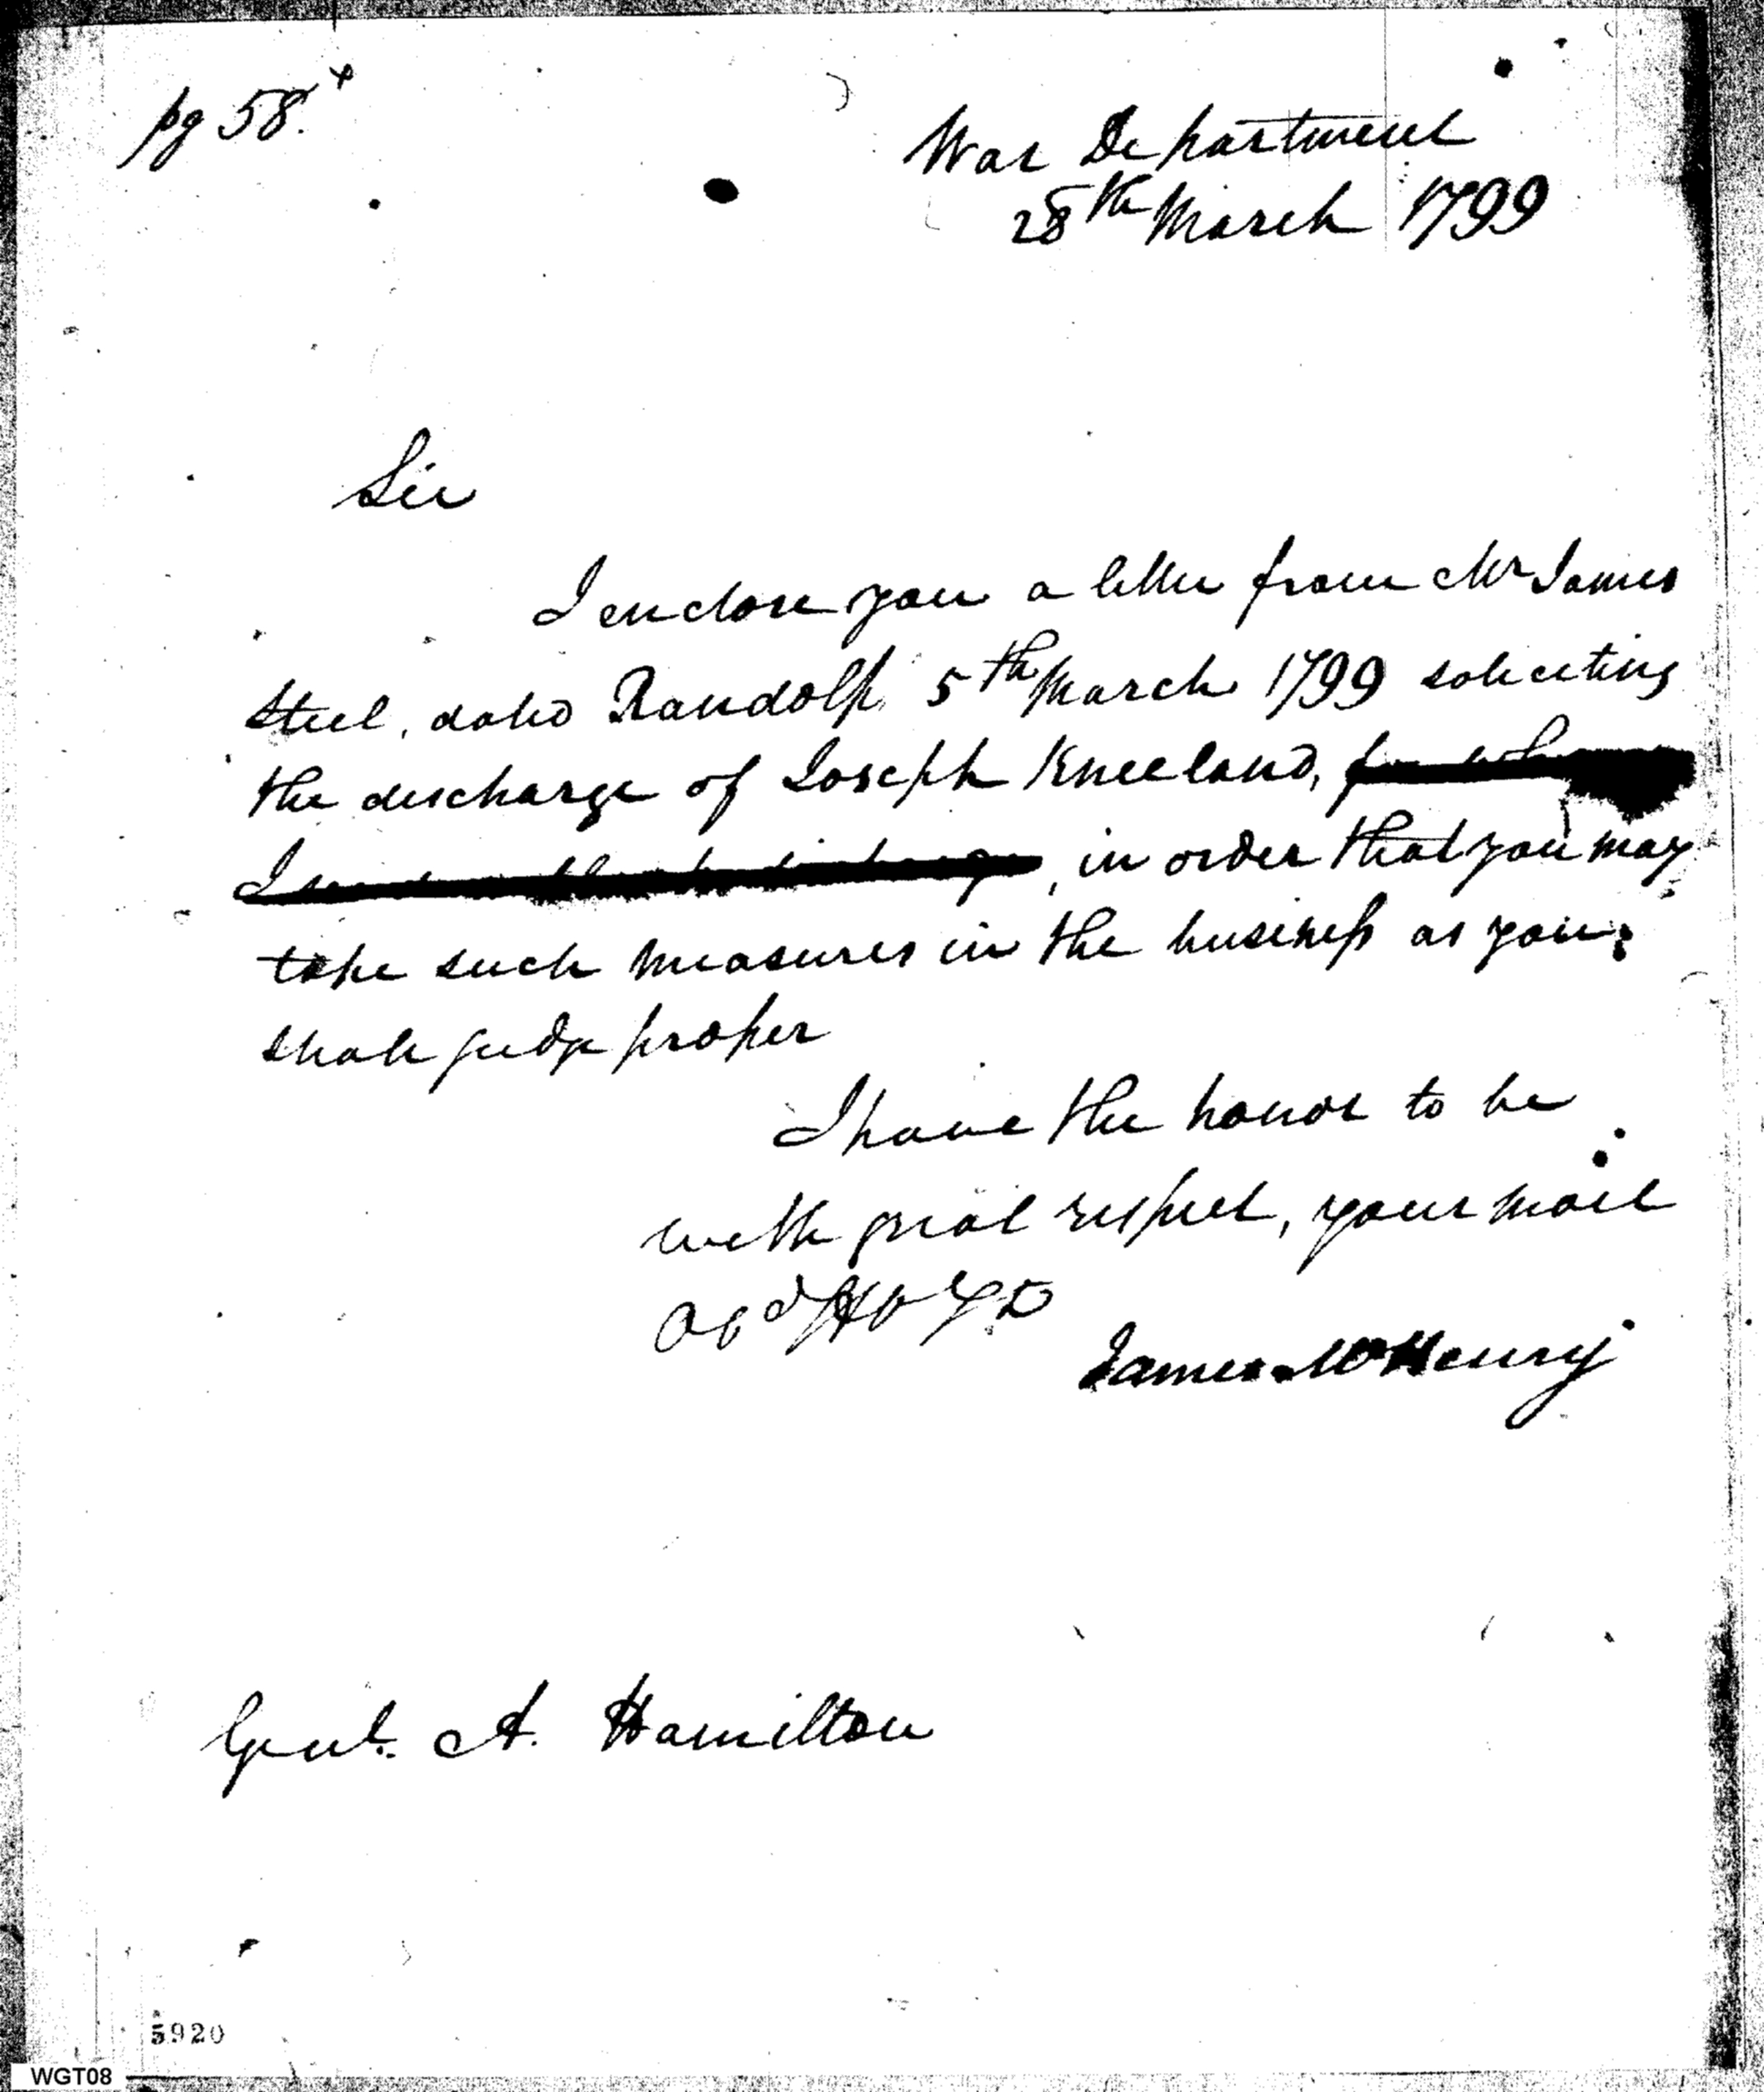 pg 58. x
War Department
28th March 1799
Sir
I enclose you a letter from Mr James
Steel, dated Randolph 5th March 1799 soliciting
the discharge of Joseph Kneeland, for
I , in order that you may
take such measures in the business as you
shall judge proper
I have the honor to be
with great respect, your most
Obd
James McHenry
Genl. A. Hamilton
5920
WGT08